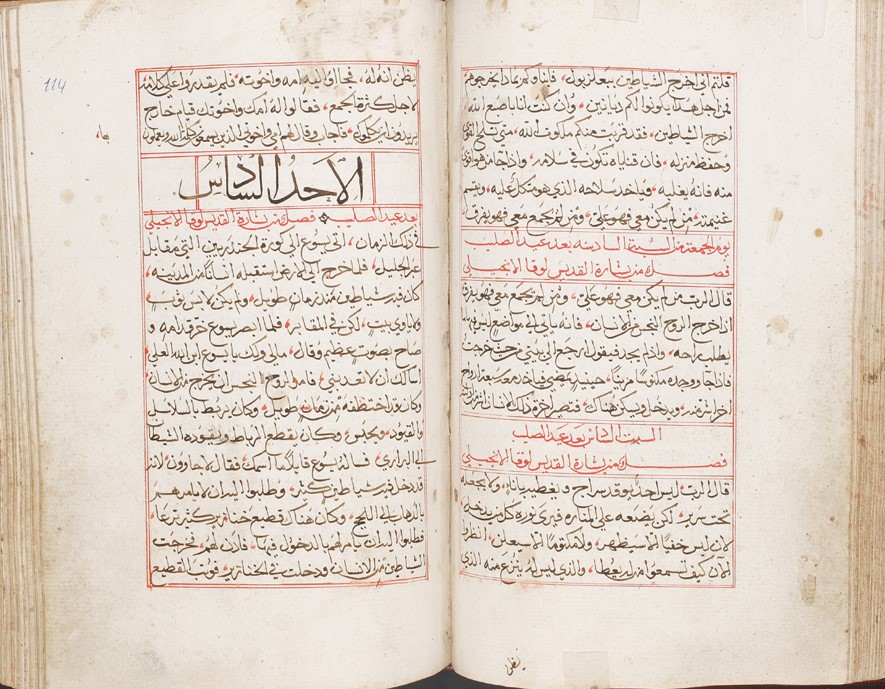 قلتم اني اخرج الشياطين ببعلزبول، فابناوكم بماذا يخرجوهم
فمن اجل هذا يكونوا لكم ديانين، وان كنت انا باصبع الله
اخرج الشياطين، فقد قربت منكم ملكوت الله، متى تسلح القوي
وحفظ منزله، فان قناياه تكون في سلامه، واذا جا من هو اقوى
منه فانه يغلبه، فياخذ سلاحه الذي هو متكل عليه، ويقسم
غنيمته، من لم يكن معي فهو علي، ومن لم يجمع معي فهو يفرق
يوم الجمعة من السبة السادسة بعد عيد الصليب
فصل من بشارة القديس لوقا الانجيلي
قال الرب من لم يكن معي فهو علي، ومن لم يجمع معي فهو يفرق
اذا خرج الروح النجس من الانسان، فانه ياتي الى مواضع ليس فيها ما
يطلب راحه، واذ لم يجد فيقول ارجع الى بيتي من حيث خرجت
فاذا جا ووجده مكنوسا مزينا، حينيذ يمضي فياخذ معه سبعة ارواح
اخر اشر منه، ويدخل ويسكن هناك، فتصير اخرة ذلك الانسان اشر من
السبت السادس بعد عيد الصليب
فصل من بشارة القديس لوقا الانجيلي
قال الرب ليس احد يوقد سراج ويغطيه باناء، ولا يجعله
تحت سرير، لكن يضعه على المناره فيرى نوره كل من يدخل
لان ليس خفيا الا سيظهر، ولا مكتوما الا سيعلن، انظروا
الان كيف تسمعوا من له يعطا، والذي ليس له ينزع منه الذي
يظن
114
يظن انه له، فجااوا اليه امه واخوته، فلم يقدروا على كلامه
لاجل كثرة الجمع، فقالوا له امك واخوتك قيام خارج
يريدون ان يكلموك، فاجاب وقال لهم امي واخوتي الذين يسمعون كلمة الله ويعملون
بها،
الاحد السادس
بعد عيد الصليب فصل من بشارة القديس لوقا الانجيلي
في ذلك الزمان، اتى يسوع الى كورة الجدريين التي مقابل
عبر الجليل، فلما خرج الى الارض استقبله انسان من المدينه
كان فيه شياطين منذ زمان طويل، ولم يكن لابس ثوب
ولا ياوي بيت، لكن في المقابر، فلما ابصر يسوع خر قدامه و
صاح بصوت عظيم وقال، مالي ولك يا يسوع ابن الله العلي
اسالك ان لا تعذبني، فامر الروح النجس ان يخرج من الانسان
وكان قد اختطفه من زمان طويل، وكان يربط بالسلاسل
والقيود ويحبس، وكان يقطع الرباط ويقوده الشيطان
الى البراري، فساله يسوع قايلا ما اسمك، فقال لاجاوون، لانه
قد دخل فيه شياطين كثير، وطلبوا اليه ان لا يامرهم
بالذهاب الى اللج، وكان هناك قطيع خنازير كثير ترعا،
فطلبوا اليه ان يامرهم بالدخول فيها، فاذن لهم، فخرجت
الشياطين من الانسان ودخلت في الخنازير، فوثب القطيع